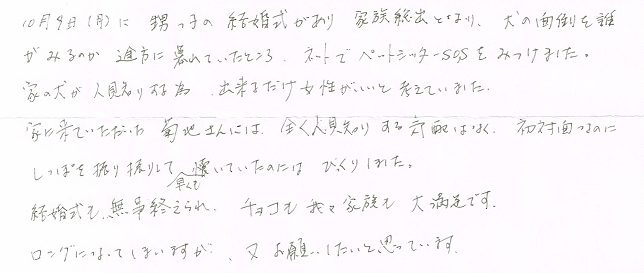 10月9日(月)に 甥っ子の 結婚式があり 家族総出となり、犬の面倒を誰
がみるのか 途方に暮れていたところ、ネットで ペットシッターSOSをみつけました。
家の犬が人見知りする為、出来るだけ女性がいいと考えていました。
家に来ていただいた 菊地さんには、全く人見知りする気配はなく、初対面なのに
しっぽを振り振りして 早くも 懐いていたのには びっくりしました。
結婚式も、無事終えられ、チョコも 我々家族も 大満足です。
ロングになってしまいますが、又お願いしたいと思っています。